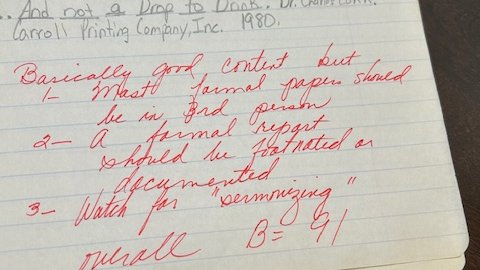 ... And not a Drop to Drink. Dr. Charles Conn.
Carroll Printing Company, Inc. 1980.
Basically good content but
1- Most formal papers should
be in 3rd person
2- A formal report
should be footnoted or
documented
3- Watch for "sermonizing"
overall B= 91